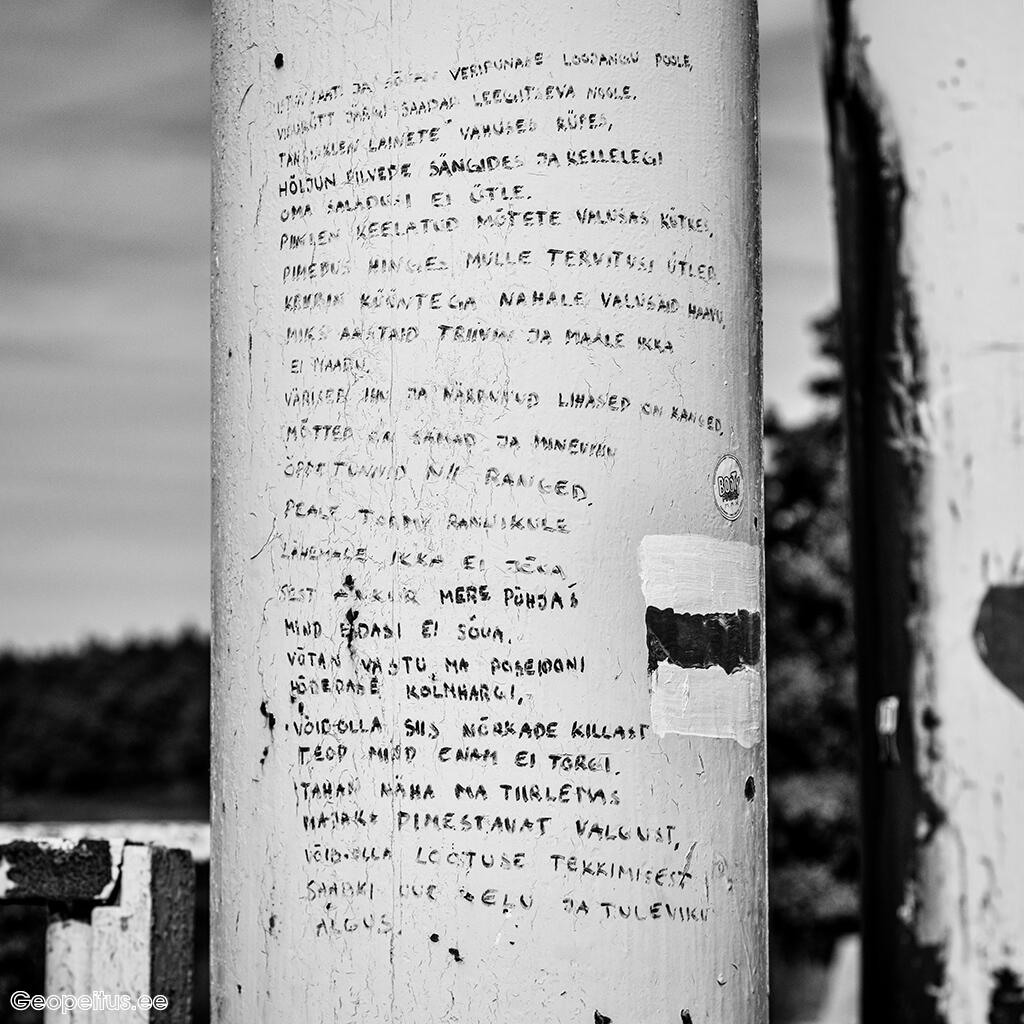 JA SÕUAN VERIPUNASE LOOJANGU POOLE,
VIBUKÜTT JÄRGI SAADAB LEEGITSEVA NOOLE.
LAINETE VAHUSES RÜPES,
HÕLJUN PILVEDE SÄNGIDES JA KELLELEGI
OMA SALADUSI EI ÜTLE.
PIINLEN KEELATUD MÕTETE VALUSAS KÜTKES,
PIMEDUS HINGES MULLE TERVITUSI ÜTLEB.
KRIIBIN KÜÜNTEGA NAHALE VALUSAID HAAVU,
MIKS AASTAID TRIIVIN JA MAALE IKKA
EI NAABU.
VÄRISEB IHU JA NÄRBUNUD LIHASED ON KANGED,
MÕTTED ON SAMAD JA MINEVIKU
ÕPPETUNNID NII RANGED.
PEALE TORMI RANNIKULE
LÄHEMALE IKKA EI JÕUA
SEST ANKUR MERE PÕHJAS
MIND EDASI EI SÕUA.
VÕTAN VASTU MA POSEIDONI
HÕBEDASE KOLMHARGI,
VÕIB-OLLA SIIS NÕRKADE KILLAST
TEOD MIND ENAM EI TÕRGI.
TAHAN NÄHA MA TIIRLEMAS
MAJAKA PIMESTAVAT VALGUST,
VÕIB-OLLA LOOTUSE TEKKIMISEST
SAABKI UUE ELU JA TULEVIKU
ALGUS.
BOOTY
Geopeitus.ee